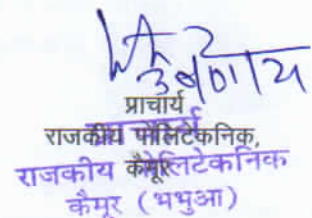 प्राचार्य
राजकीय पोलिटेकनिक,
कैमूर
राजकीय पोलिटेकनिक
कैमूर (भभुआ)